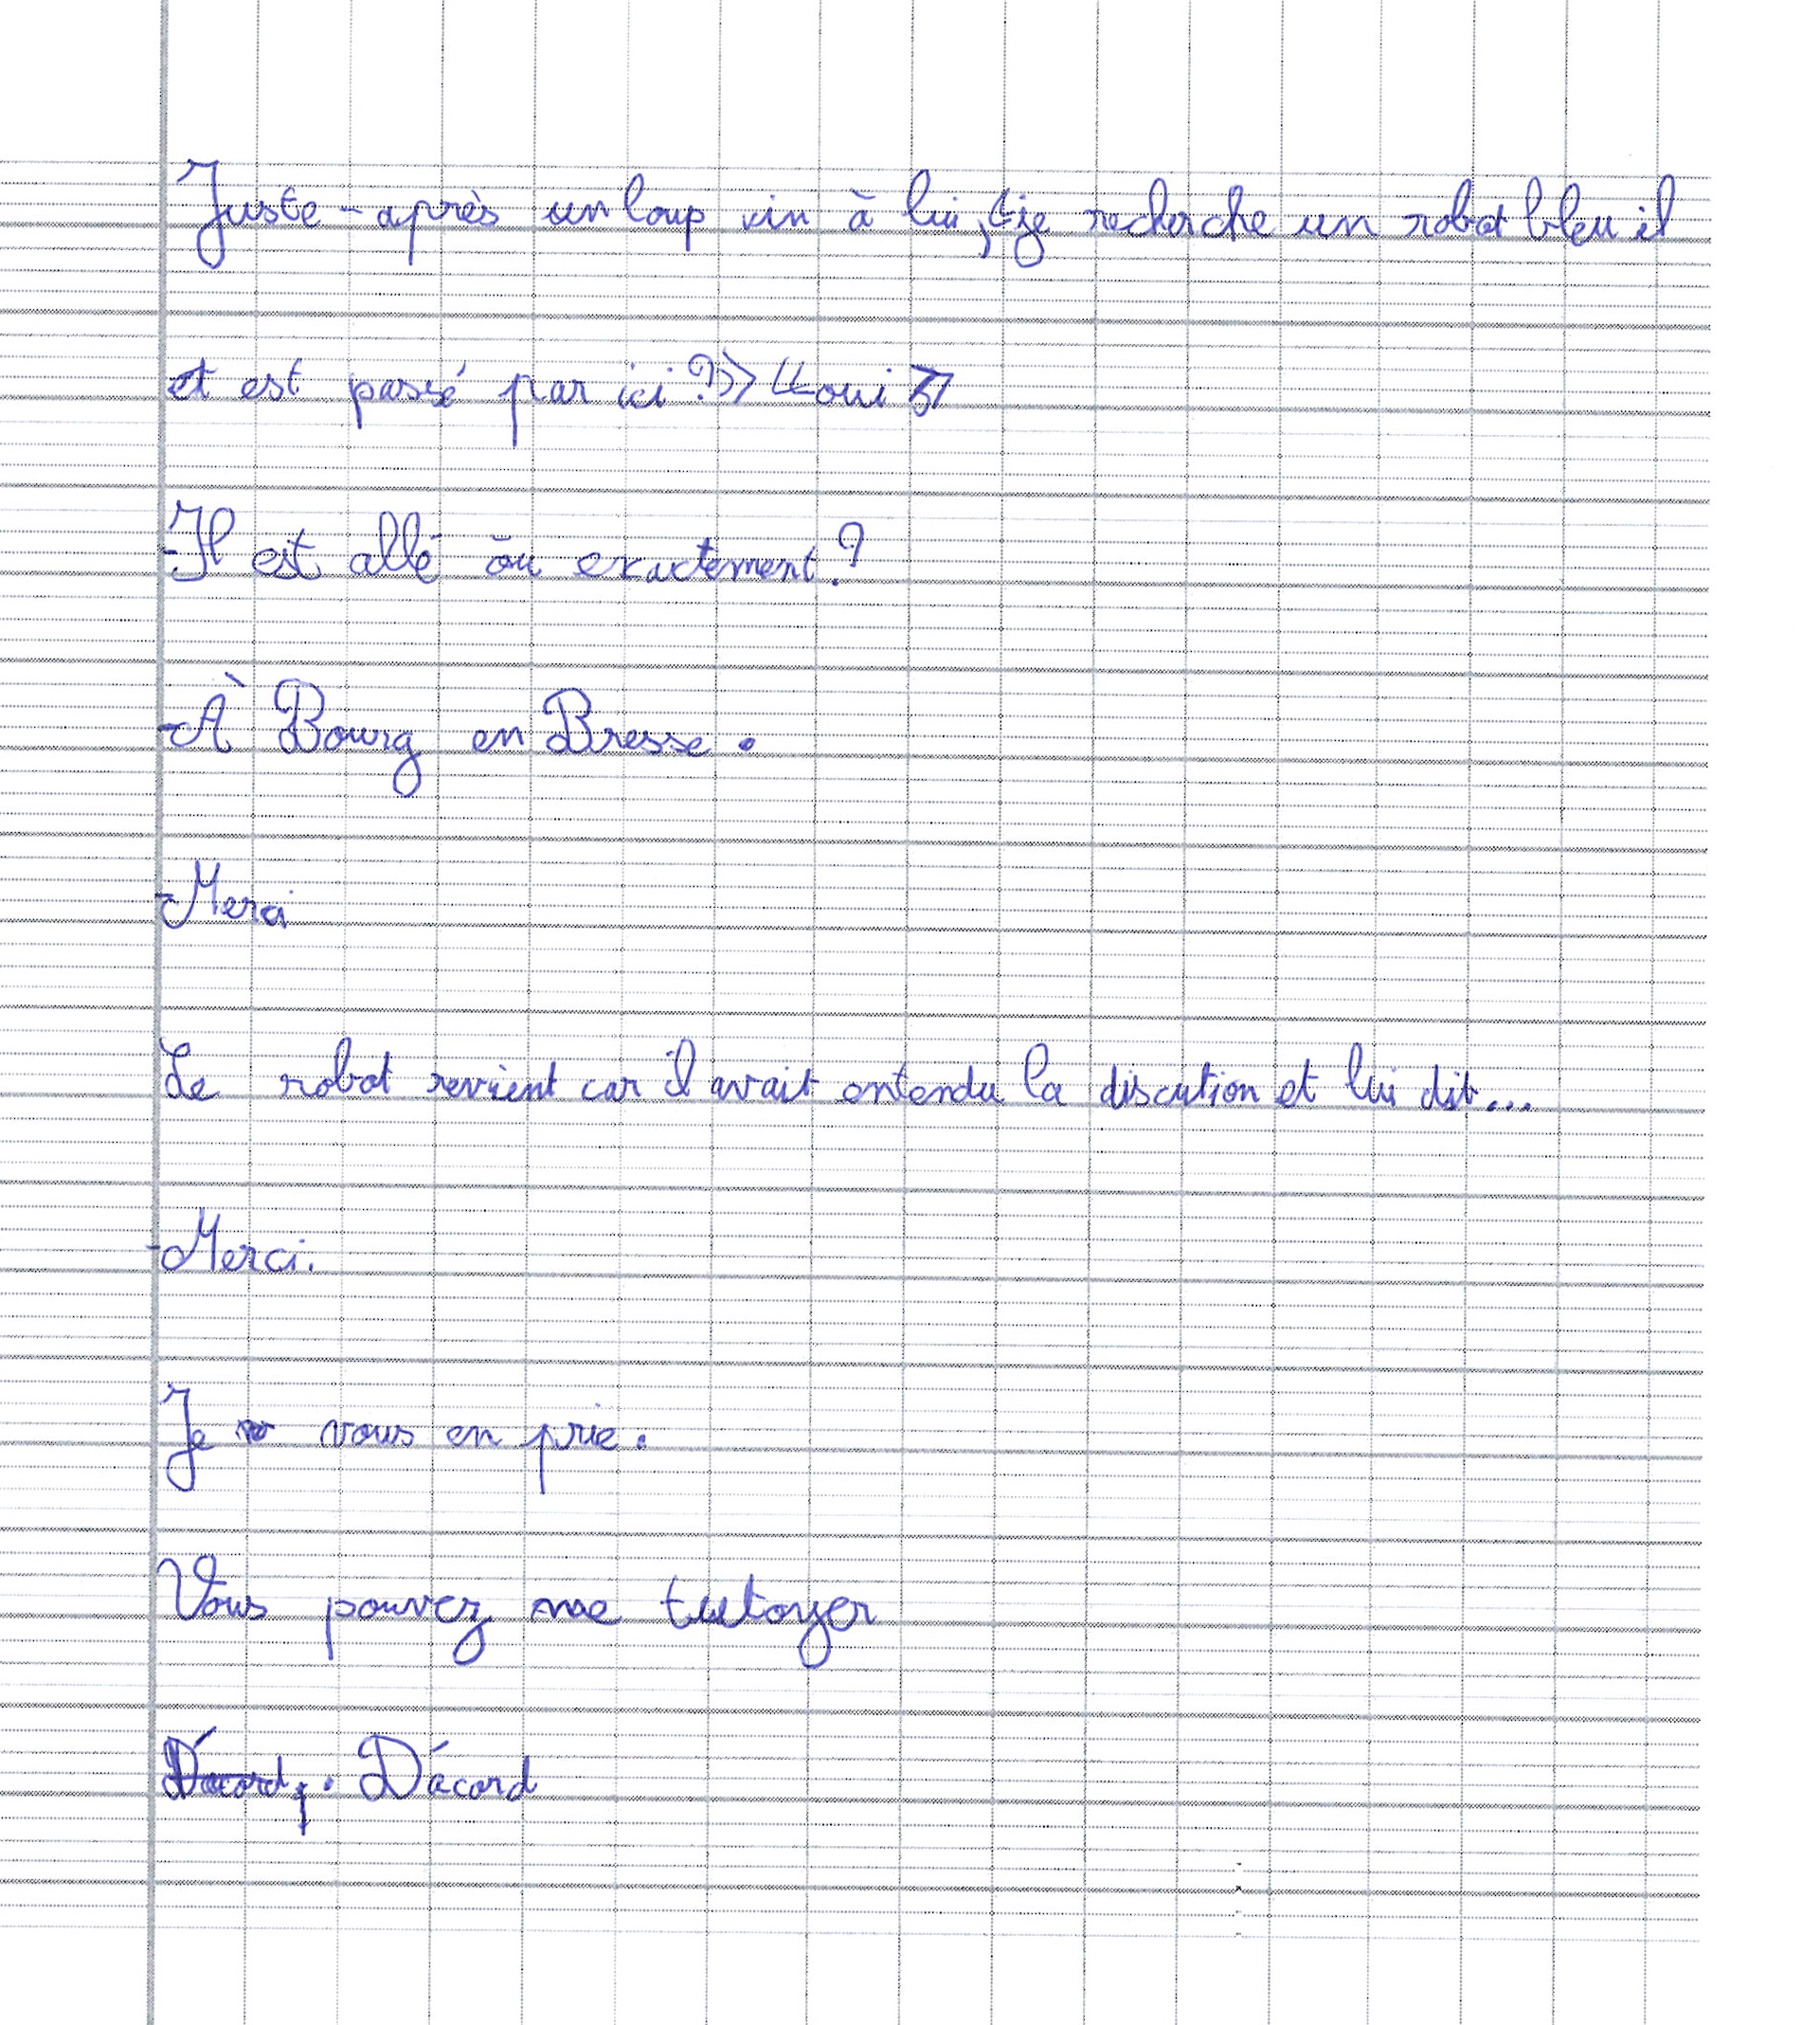 Juste-après un loup vin à lui, «je recherche un robot bleu il
et est passé par ici ?» «oui»
-Il est allé où exactement ?
-À Bourg en Bresse.
-Merci
Le robot revient car il avait entendu la discution et lui dit...
-Merci.
Je vous en prie.
Vous pouvez me tutoyer
D'acord. D'acord